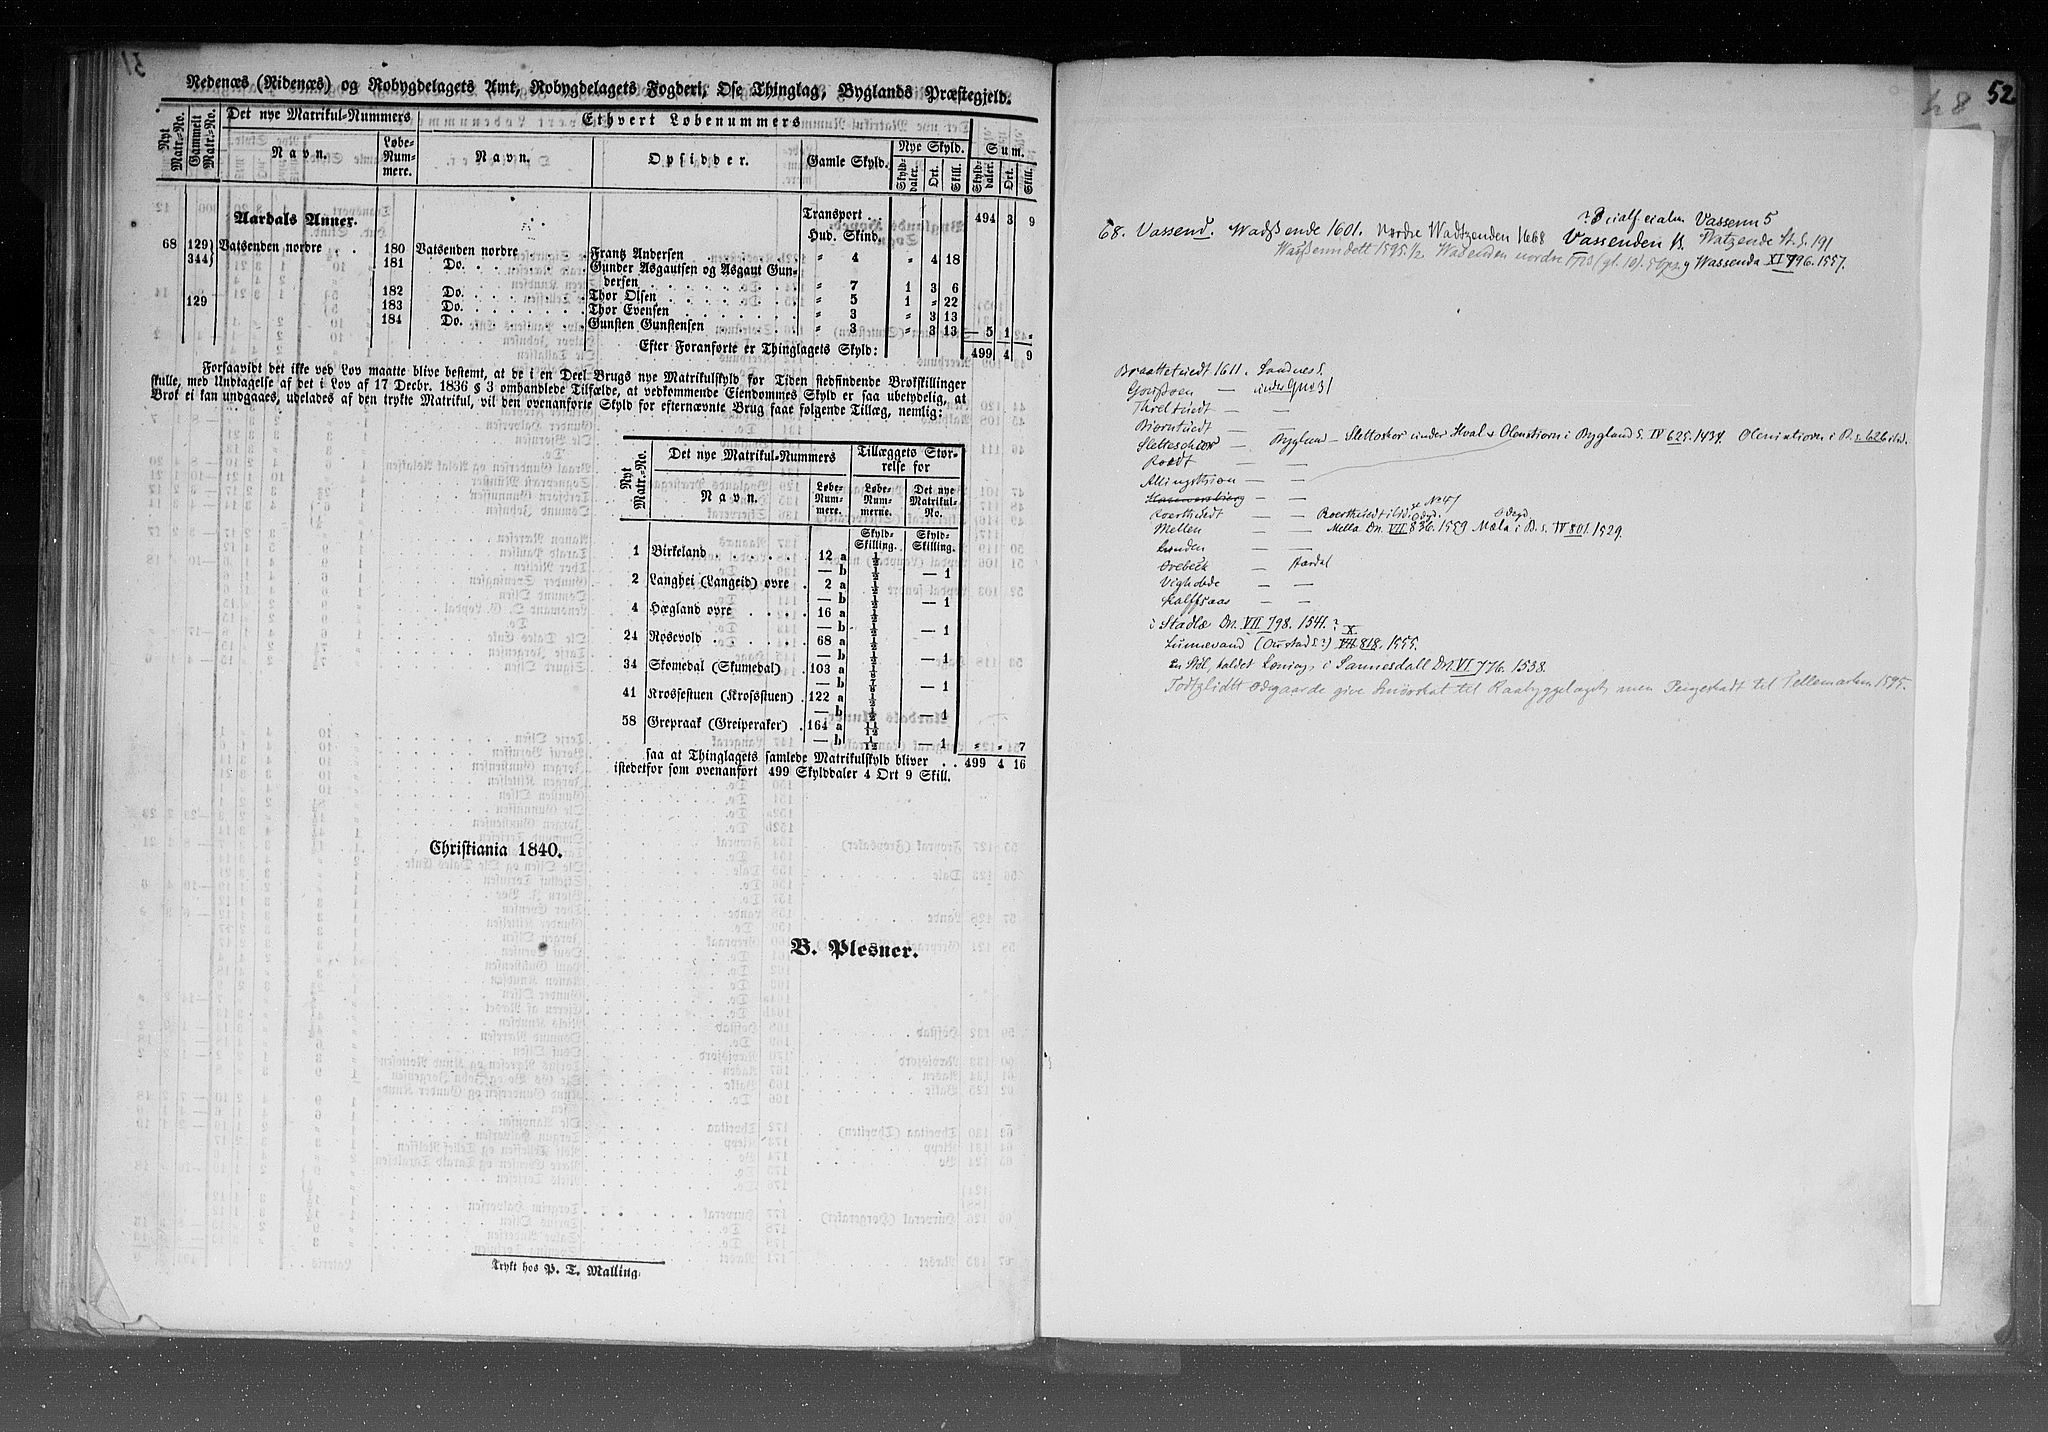 Nedenæs (Ridenæs) og Robygdelagets Amt, Robygdelagets Fogderi, Ose Thinglag, Byglands Præstegjeld.
Nyt Matr.-No. Gammelt Matr.-No. Det nye Matrikul-Nummers Ethvert Løbenummers Sum.
Navn. Løbe-Num-mere. Navn. Opsidder. Gamle Skyld. Nye Skyld.
Skyld-daler. Ort. Skill. Skyld-daler. Ort. Skill.
Aardals Anner. Transport . . 494 3 9
Hud. Skind.
68 129) Vatsenden nordre . . . 180 Vatsenden nordre . . . Frantz Andersen . . . „ 4 „ 4 18
344) 181 Do. . . . Gunder Asgautsen og Asgaut Gun-
dersen . . . „ 7 1 3 6
129 182 Do. . . . Thor Olsen . . . „ 5 1 „ 22
183 Do. . . . Thor Evensen . . . „ 3 „ 3 13
184 Do. . . . Gunsten Gunstensen . . . „ 3 „ 3 13 — 5 1 „
Efter Foranførte er Thinglagets Skyld: 499 4 9
Forsaavidt det ikke ved Lov maatte blive bestemt, at de i en Deel Brugs nye Matrikulskyld for Tiden stedfindende Brøkskillinger
skulle, med Undtagelse af det i Lov af 17 Decbr. 1836 § 3 omhandlede Tilfælde, at vedkommende Eiendommes Skyld er saa ubetydelig, at
Brøk ei kan undgaaes, udelades af den trykte Matrikul, vil den ovenanførte Skyld for efternævnte Brug faae følgende Tillæg, nemlig:
Nyt Matr.-No. Det nye Matrikul-Nummers Tillæggets Stør-
relse for
Navn. Løbe-Num-mere. Løbe-Num-merne. Det nye Matrikul-No.
Skyld-Skilling. Skyld-Skilling.
1 Birkeland . . . 12 a ½
— b ½ — 1
2 Langhei (Langeid) øvre . 2 a ½
— b ½ — 1
4 Hægland øvre . . . 16 a ½
— b ½ — 1
24 Rosevold . . . 68 a ½
— b ½ — 1
34 Skomedal (Skumedal) . 103 a ⅛
— b ⅞ — 1
41 Krossestuen (Krofsstuen) . 122 a ½
— b ½ — 1
58 Grepraak (Greiperaker) . 164 a 11/12
— b 1/12 — 1 „ „ 7
saa at Thinglagets samlede Matrikulskyld bliver . . 499 4 16
istedetfor som ovenanført 499 Skylddaler 4 Ort 9 Skill.
Christiania 1840.
B. Plesner.
Trykt hos P. T. Malling.
48
52
Vassenn 5
68. Vassend. Wadssende 1601. Nordre Wadtzenden 1668 Vassenden B. Watzende St. S. 191
1595. ½ Wadenden nordre 1723 Wassenda XI 796. 1557.
Braattetuedt 1611. Sandnes S.
— under Gno 31
Threltuedt — —
Biorntuedt —
— Bygland — Slettoskor under Hval Olenstiorn i Bygland S. IV 625. 1434. Olenstiorn i B. s. 626 ibd.
Roedt — —
— —
Hammersbierg — —
— — No 47
Mellen — Mella Dn. VII 836. 1559 Mæla i B. s. IV 801. 1529.
Lunden — —
Ørebeck — Aardal
— —
Kalffsaas — —
i Stadlæ Dn. VII 798. 1541. ?
Lunnevand VIII X 818. 1555.
En Støl, kaldet i Sannesdall Dn. VI 776. 1538.
ødegaarde give Smørskat til Raabyggelaget, men til Tellemarken 1595.